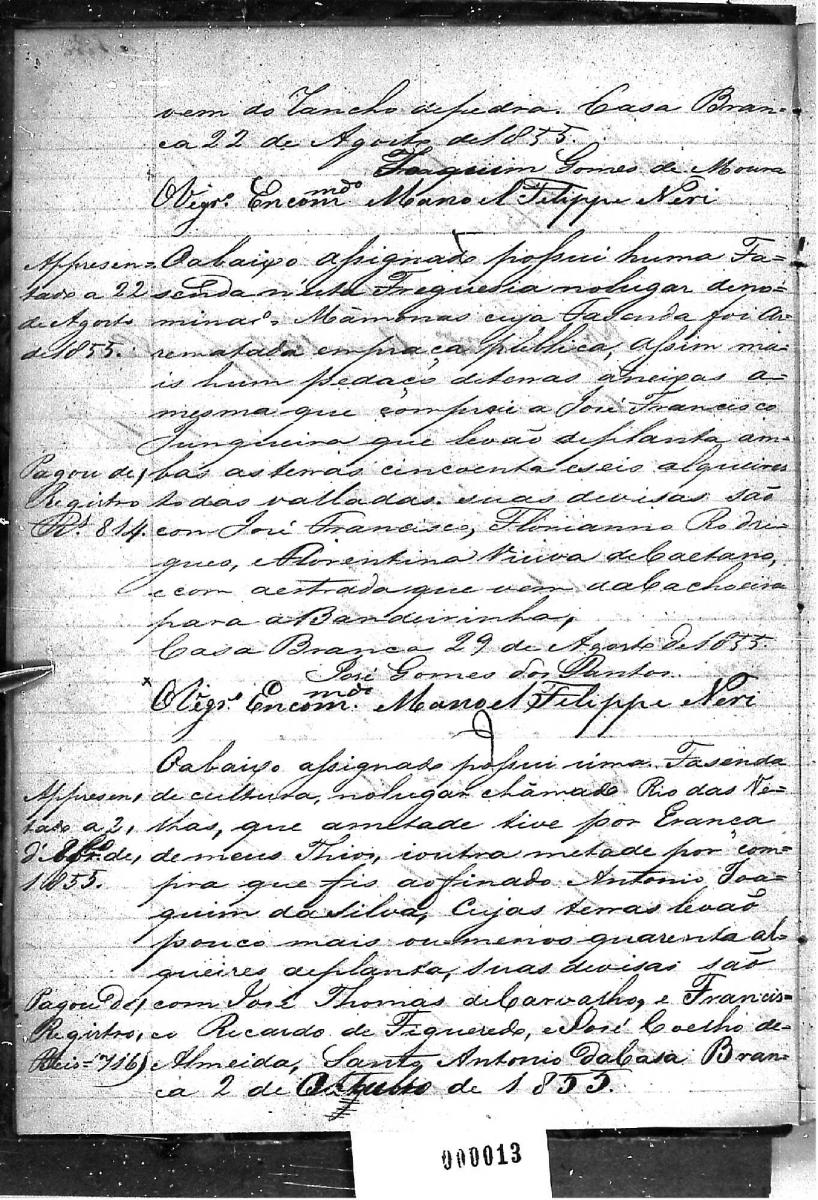 vem do Tancho de pedra. Casa Bran=
ca 22 de Agosto de 1855.
Joaquim Gomes de Moura
O Vigr.º Encom.mdo Manoel Filippe Neri
Appresen=
tado a 22
de Agosto
de 1855.
O abaixo assignado possui huma Fa=
senda nesta Freguesia no lugar deno=
minado, Mamonas cuja Fasenda foi ar=
rematada em praça publica, assim ma=
is hum pedaço de terras aneixas a=
mesma que comprei a José Francisco
Junqueira que levão de planta am=
bas as terras cincoenta e seis alqueires
todas valladas. suas devisas são
com José Francisco, Florianno Rodri=
gues, e Florentina Viuva de Caetano,
e com a estrada que vem da Cachoeira
para a Bandeirinha,
Pagou de,
Registro
Rs. 814.
Casa Branca 29 de Agosto de 1855.
José Gomes dos Santos.
O Vigr.º Encom.mdo Manoel Filippe Neri
Appresen,
tado a 2,
de,
1855.
O abaixo assignado possui uma Fasenda
de cultura, no lugar chamado Rio das Ve=
lhas, que ametade tive por Eranca
de meus Thios, e outra metade por com=
pra que fis ao finado Antonio Joa=
quim da Silva, Cujas terras levão
pouco mais ou menos quarenta al=
queires de planta, suas devisas são
com José Thomas de Carvalho, e Francis=
co Ricardo de Figueredo, e José Coelho de=
Almeida, Santo Antonio da Casa Bran=
ca 2 de Outubro de 1855.
Pagou de,
Registro,
Reis= 716)
000013